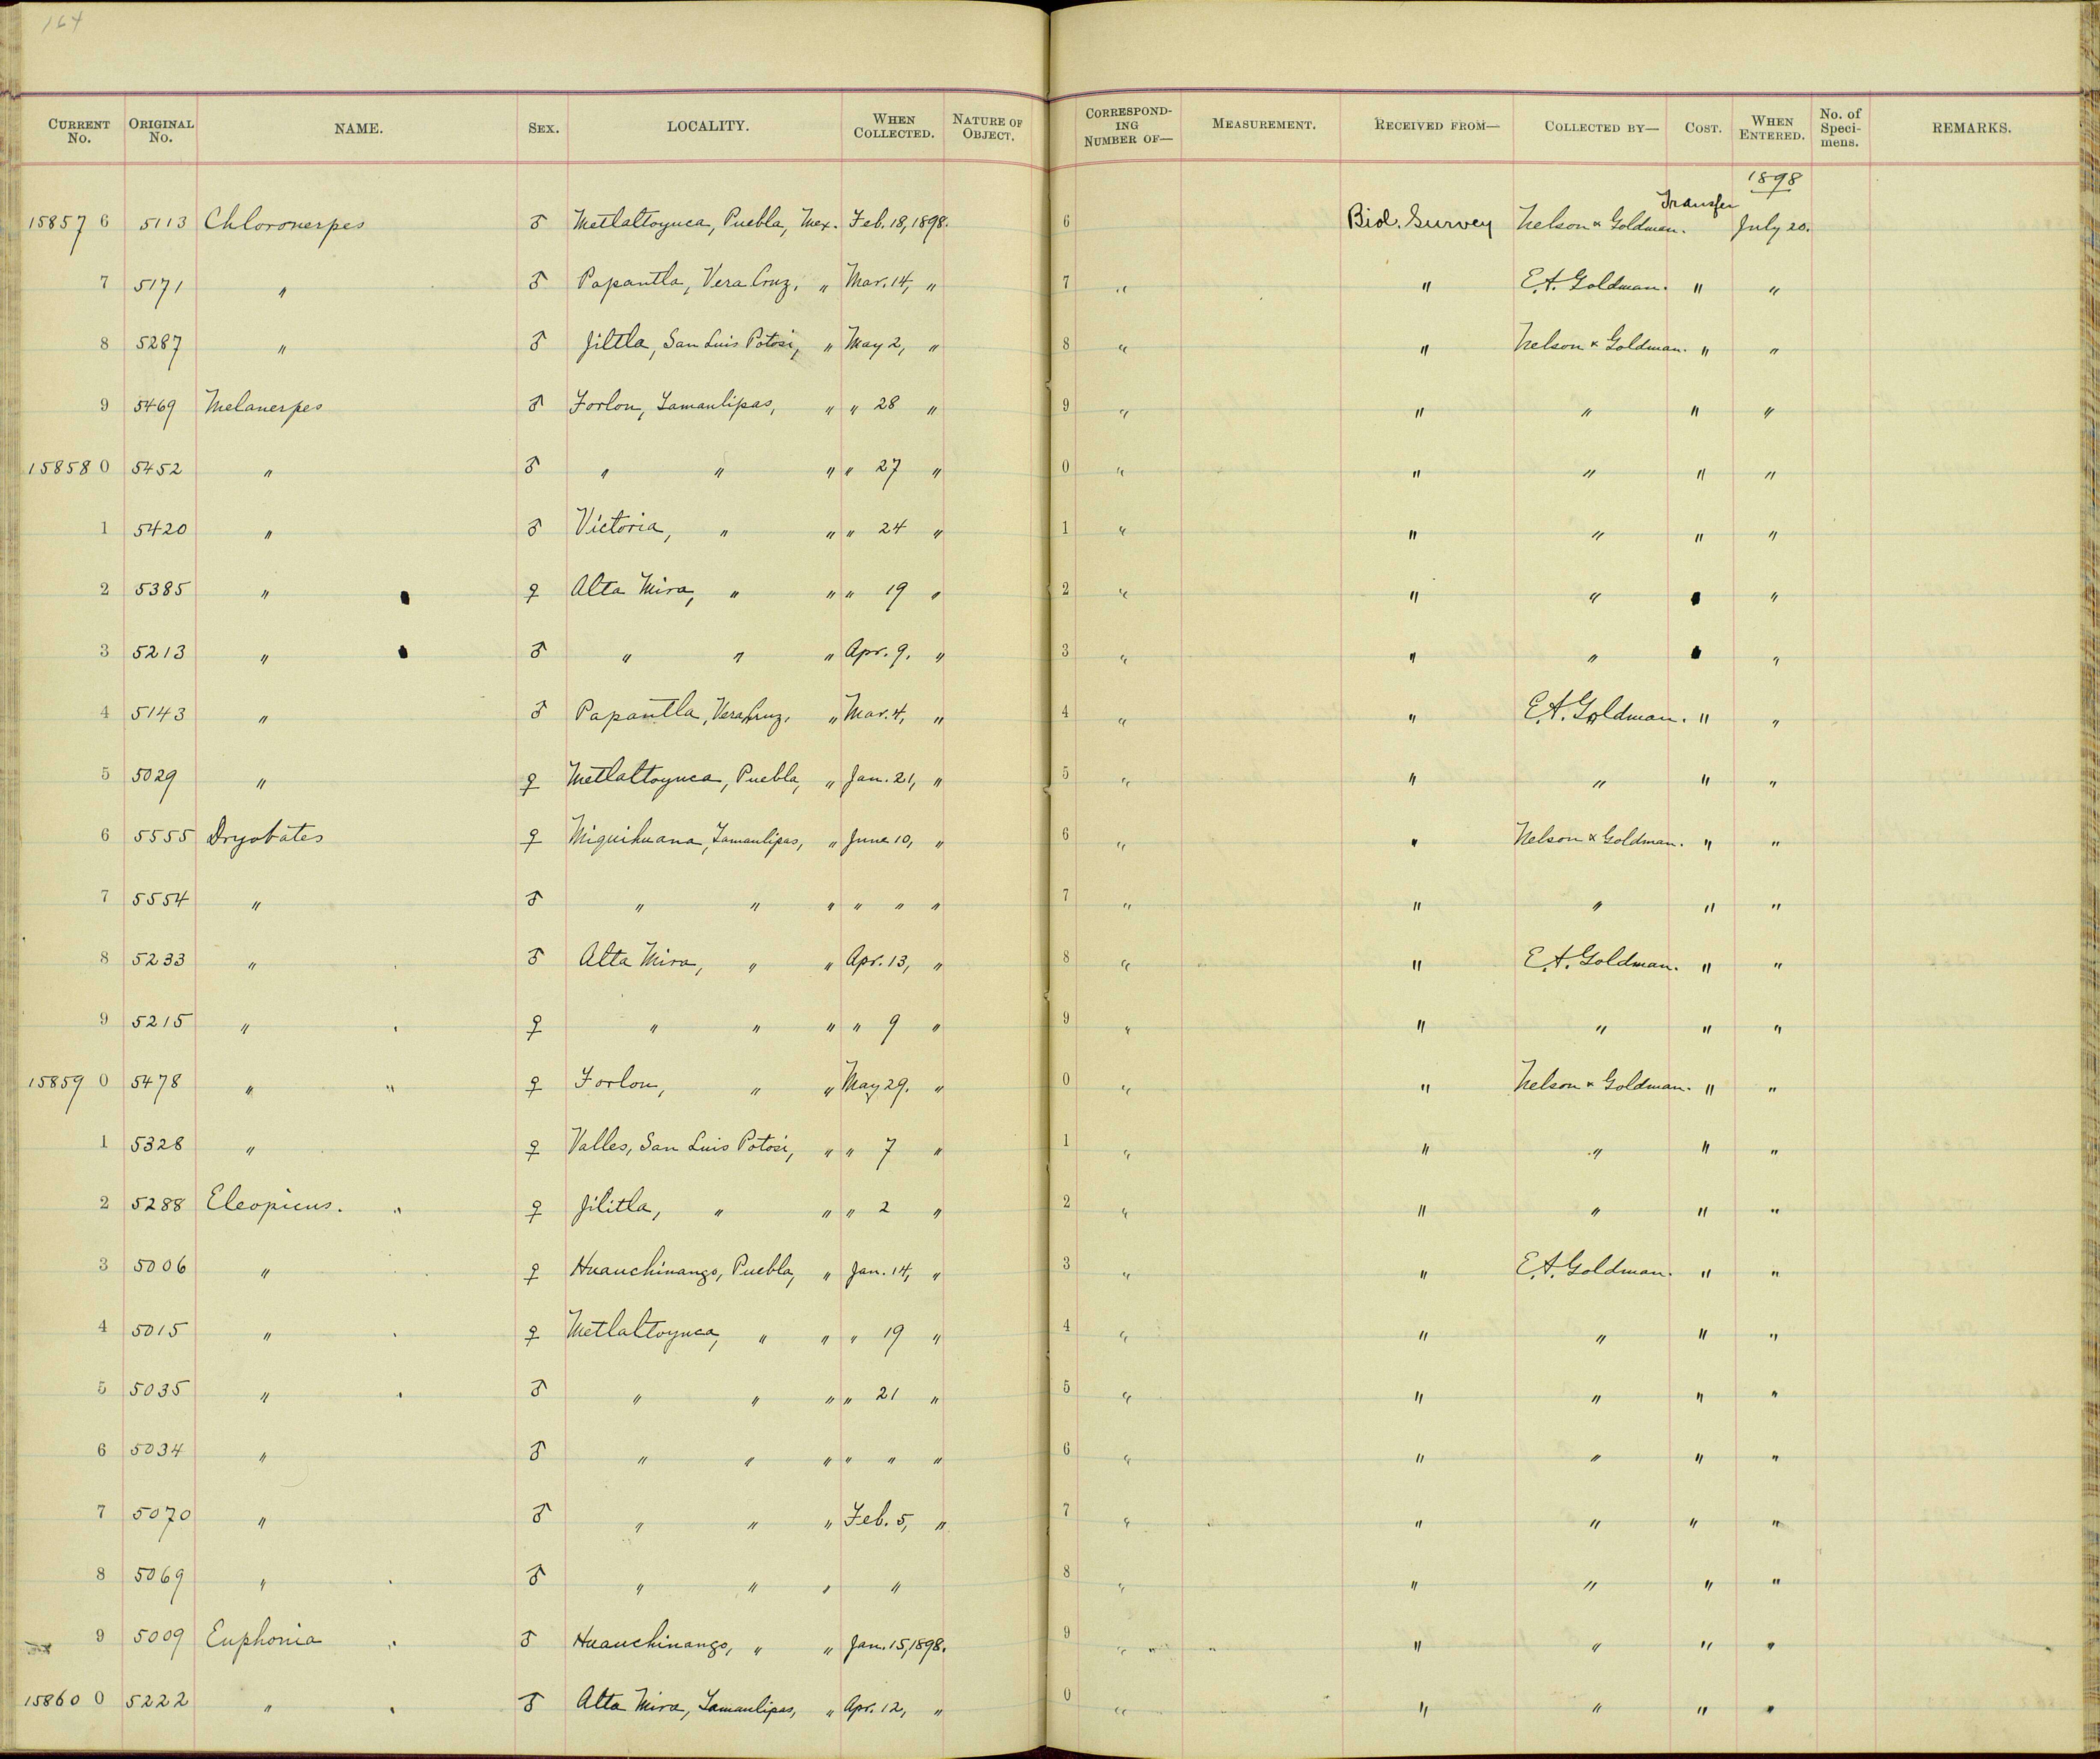 164
CURRENT No. ORIGINAL No. NAME. SEX. LOCALITY. WHEN COLLECTED. NATURE OF OBJECT. CORRESPONDING NUMBER OF— MEASUREMENT. RECEIVED FROM— COLLECTED BY— COST. WHEN ENTERED. No. of Specimens. REMARKS.
1898
15857 6 5113 Chloronerpes ♂ Metlaltoyuca, Puebla, Mex. Feb. 18, 1898. 6 Biol. Survey Nelson & Goldman. Transfer July 20.
7 5171 " ♂ Papantla, Vera Cruz, " Mar. 14, " 7 " " E.A. Goldman. " "
8 5287 " ♂ Jiltla, San Luis Potosi, " May 2, " 8 " " Nelson & Goldman. " "
9 5469 Melanerpes ♂ Forlon, Tamaulipas, " " 28 " 9 " " " " "
15858 0 5452 " ♂ " " " " 27 " 0 " " " " "
1 5420 " ♂ Victoria, " " " 24 " 1 " " " " "
2 5385 " ♀ Alta Mira, " " " 19 " 2 " " " "
3 5213 " ♂ " " " Apr. 9. " 3 " " " "
4 5143 " ♂ Papantla, Vera Cruz, " Mar. 4, " 4 " " E.A. Goldman. " "
5 5029 " ♀ Metlaltoyuca, Puebla, " Jan. 21, " 5 " " " " "
6 5555 Dryobates ♀ Miquihuana, Tamaulipas, " June 10, " 6 " " Nelson & Goldman. " "
7 5554 " ♂ " " " " " " 7 " " " " "
8 5233 " ♂ Alta Mira, " " Apr. 13, " 8 " " E.A. Goldman. " "
9 5215 " ♀ " " " " 9 " 9 " " " " "
15859 0 5478 " " ♀ Forlon, " " May 29. " 0 " " Nelson & Goldman. " "
1 5328 " ♀ Valles, San Luis Potosi, " " 7 " 1 " " " " "
2 5288 Eleopicus. " ♀ Jilitla, " " " 2 " 2 " " " " "
3 5006 " ♀ Huauchinango, Puebla, " Jan. 14, " 3 " " E.A. Goldman. " "
4 5015 " ♀ Metlaltoyuca, " " " 19 " 4 " " " " "
5 5035 " ♂ " " " " 21 " 5 " " " " "
6 5034 " ♂ " " " " " " 6 " " " " "
7 5070 " ♂ " " " Feb. 5, " 7 " " " " "
8 5069 " ♂ " " " " 8 " " " " "
9 5009 Euphonia ♂ Huauchinango, " " Jan. 15, 1898. 9 " " " " "
15860 0 5222 " ♂ Alta Mira, Tamaulipas, " Apr. 12, " 0 " " " " "